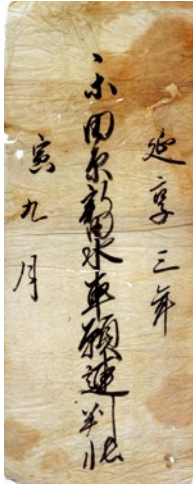 延享三年
田原新田水車願連判状
寅九月